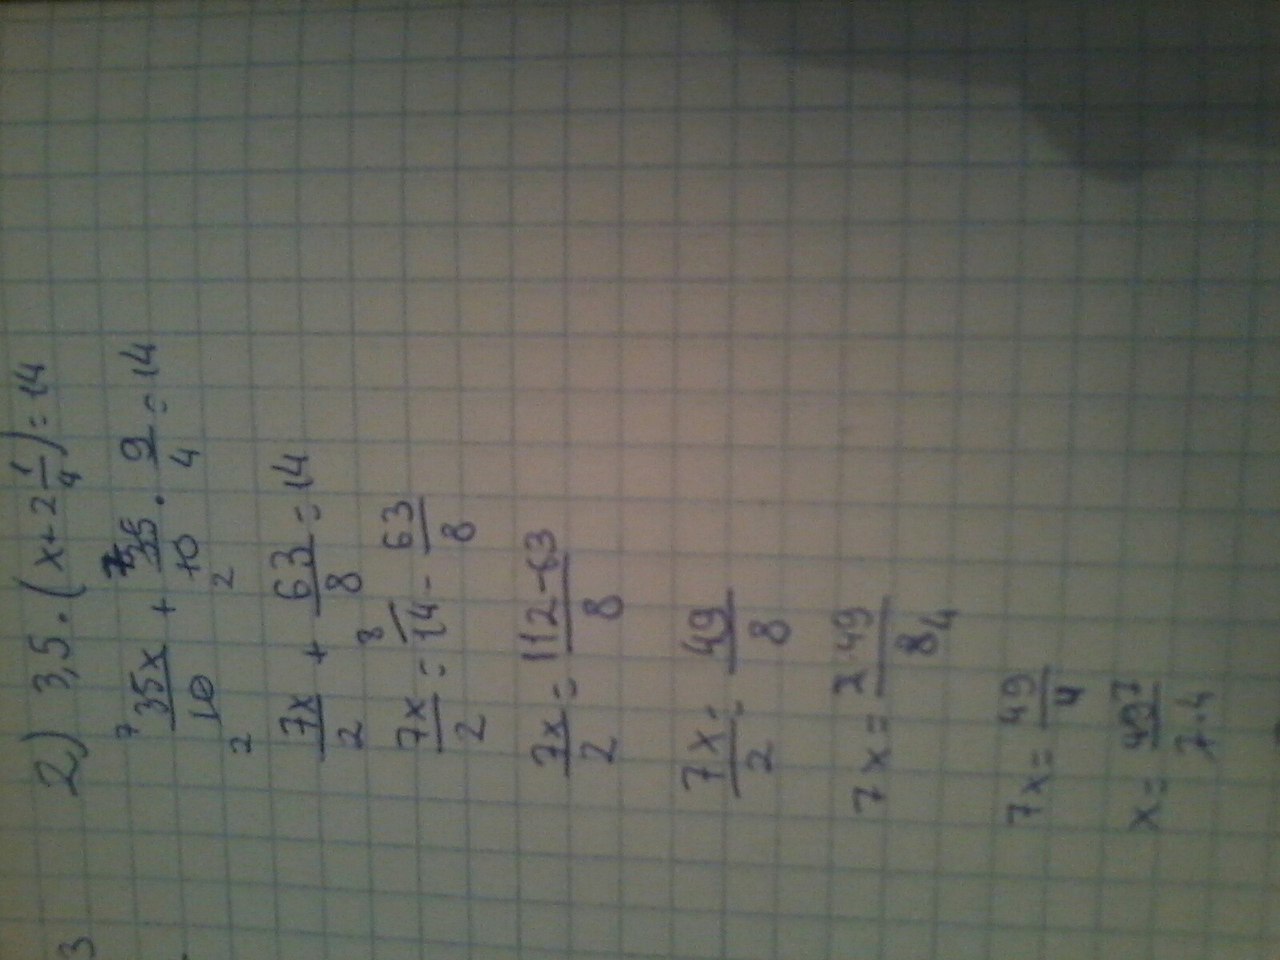 2) 3,5 · (x + 2 1/4) = 14
7 35x/10 2 + 35/10 2 · 9/4 = 14
7x/2 + 63/8 = 14
7x/2 = 8 14 - 63/8
7x/2 = 112-63/8
7x/2 = 49/8
7x = 2·49/8 4
7x = 49/4
x = 49 7/7·4
3